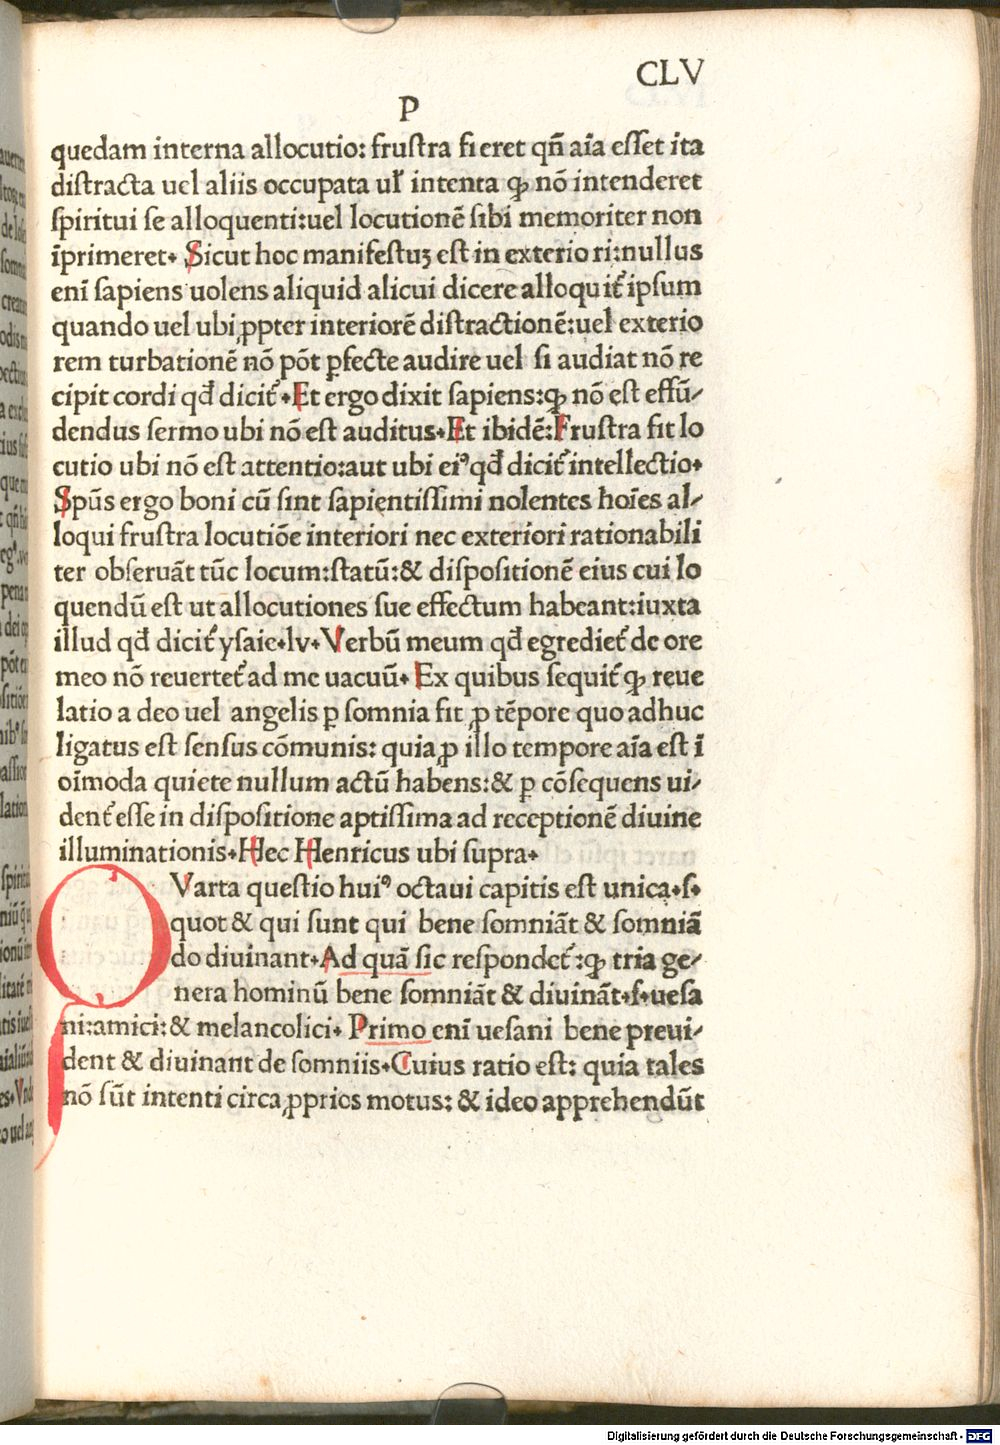 CLV
P
quedam interna allocutio: frustra fieret qñ aīa esset ita
distracta uel aliis occupata uł intenta ꝙ nō intenderet
spiritui se alloquenti:uel locutionē sibi memoriter non
īprimeret. Sicut hoc manifestuꝫ est in exteriori:nullus
enī sapiens uolens aliquid alicui dicere alloquit᷑ ipsum
quando uel ubi ꝓpter interiorē distractionē:uel exterio
rem turbationē nō pōt ꝑfecte audire uel si audiat nō re
cipit cordi qđ dicit᷑. Et ergo dixit sapiens:ꝙ nō est effū-
dendus sermo ubi nō est auditus. Et ibidē:Frustra fit lo
cutio ubi nō est attentio:aut ubi eiꝰ qđ dicit᷑ intellectio.
Spūs ergo boni cū sint sapientissimi nolentes hoīes al-
loqui frustra locutiōe interiori nec exteriori rationabili
ter obseruāt tūc locum:statū:& dispositionē eius cui lo
quendū est ut allocutiones sue effectum habeant:iuxta
illud qđ dicit᷑ ysaie.lv. Verbū meum qđ egrediet᷑ de ore
meo nō reuertet᷑ ad me uacuū. Ex quibus sequit᷑ ꝙ reue
latio a deo uel angelis ꝑ somnia fit ꝓ tēpore quo adhuc
ligatus est sensus cōmunis: quia ꝓ illo tempore aīa est ī
oīmoda quiete nullum actū habens:& ꝑ cōsequens ui-
dent᷑ esse in dispositione aptissima ad receptionē diuine
illuminationis. Hec Henricus ubi supra.
QVarta questio huiꝰ octaui capitis est unica.s.
quot & qui sunt qui bene somniāt & somniā
do diuinant. Ad quā sic respondet᷑:ꝙ tria ge-
nera hominū bene somniāt & diuināt.s.uesa
ni:amici:& melancolici. Primo enī uesani bene preui-
dent & diuinant de somniis. Cuius ratio est: quia tales
nō sūt intenti circa ꝓprios motus: & ideo apprehendūt
Digitalisierung gefördert durch die Deutsche Forschungsgemeinschaft - DFG